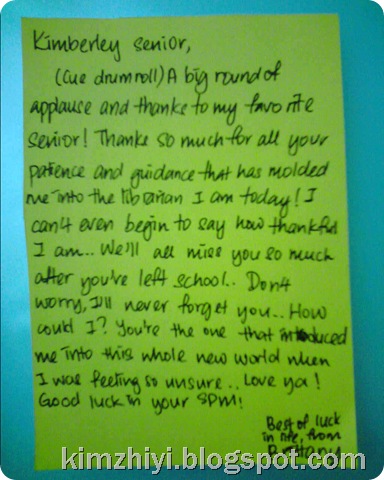 Kimberley senior,
(Cue drumroll) A big round of
applause and thanks to my favorite
senior! Thanks so much for all your
patience and guidance that has molded
me into the librarian I am today! I
can't even begin to say how thankful
I am.. We'll all miss you so much
after you've left school.. Don't
worry, I'll never forget you.. How
could I? You're the one that introduced
me into this whole new world when
I was feeling so unsure.. Love ya!
Good luck in your SPM!
Best of luck
in life, from
Brittany
kimzhiyi.blogspot.com